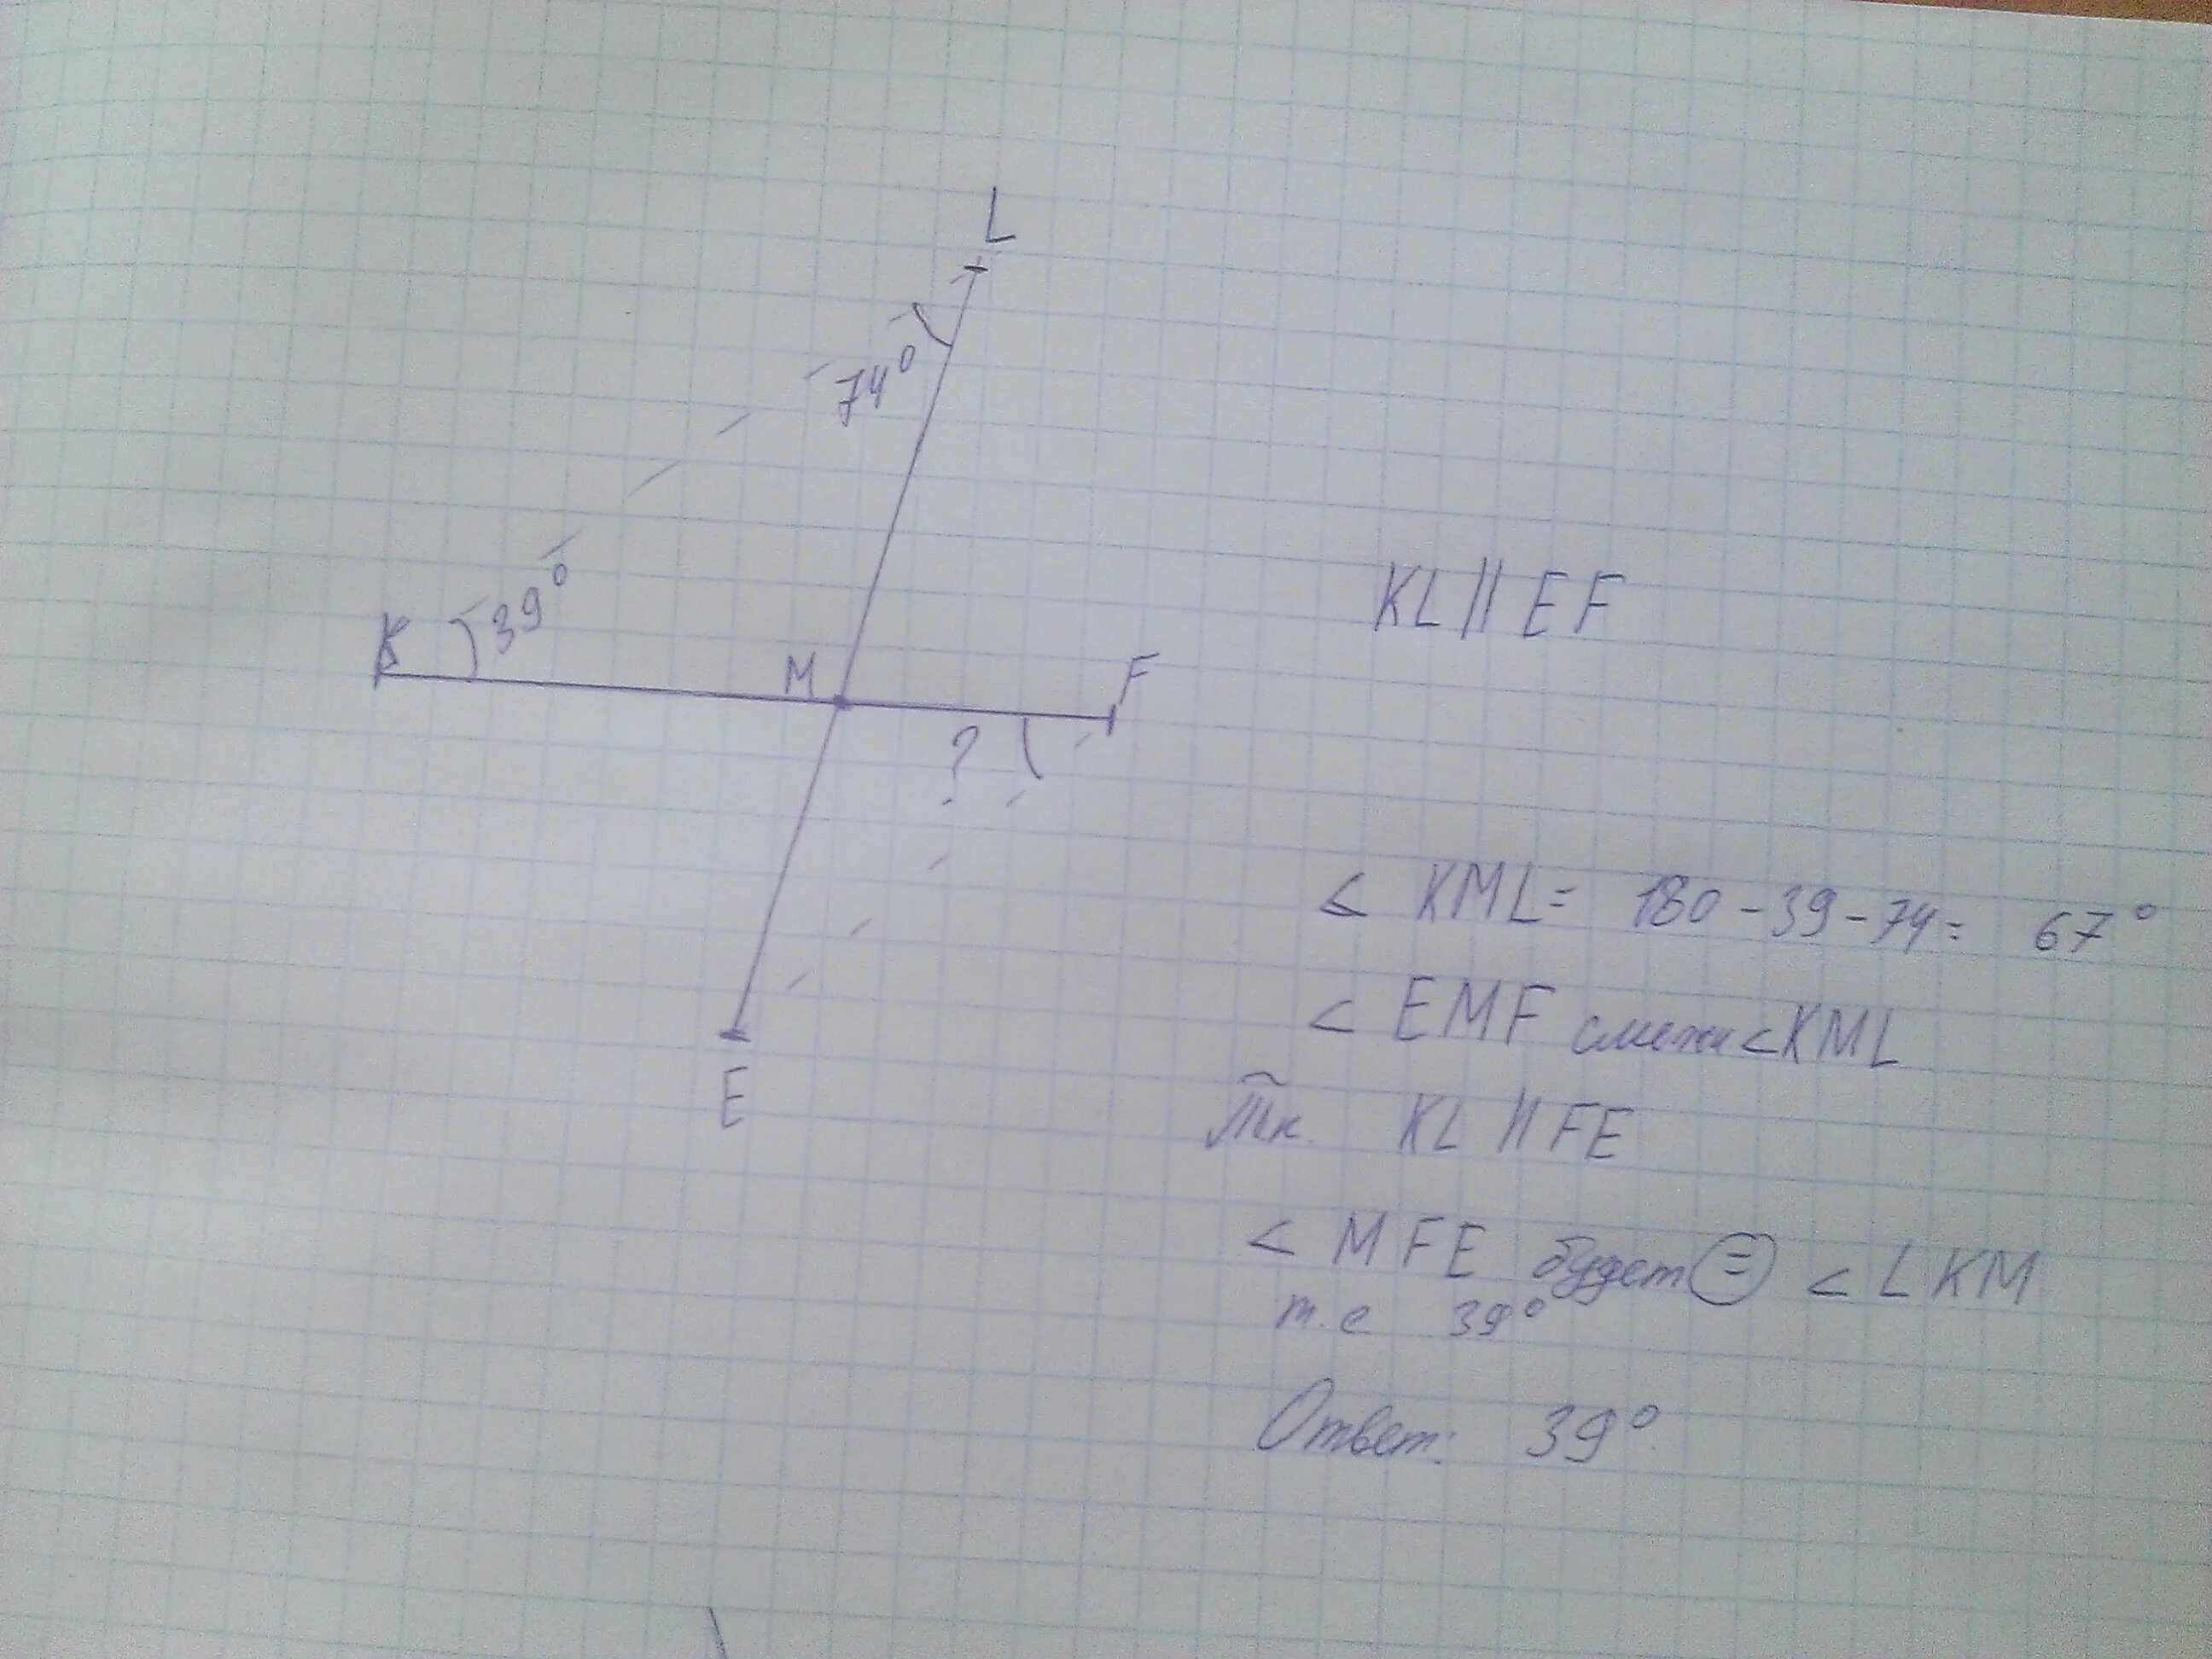 L
74°
39°
K
M
F
?
E
KL || EF
< KML = 180 - 39 - 74 = 67°
< EMF смежн < KML
Тк. KL || FE
< MFE будет = < LKM
т.е 39°
Ответ: 39°